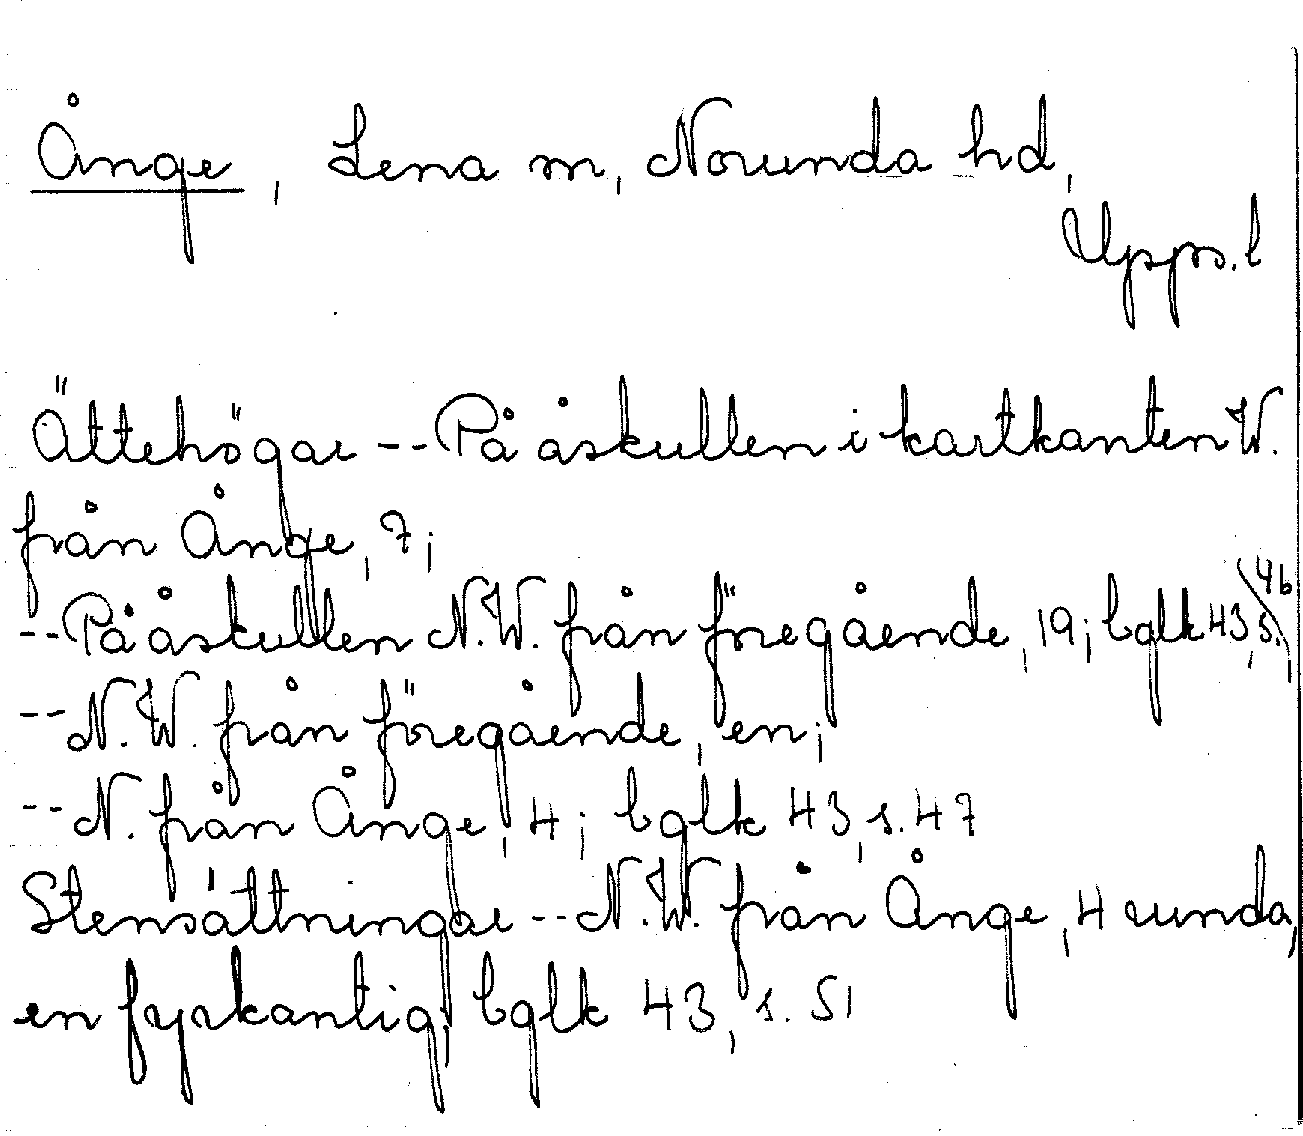 Ånge, Lena sn, Norunda hd,
Upps. l
Ättehögar -- På åskullen i kartkanten W.
från Ånge, 7;
-- På åskullen N.W. från föregående, 19; bglk 43, s. 46
-- N.W. från föregående, en;
-- N. från Ånge, 4; bglk 43, s. 47
Stensättningar -- N.W. från Ånge, 4 runda,
en fyrkantig; bglk 43, s. 51